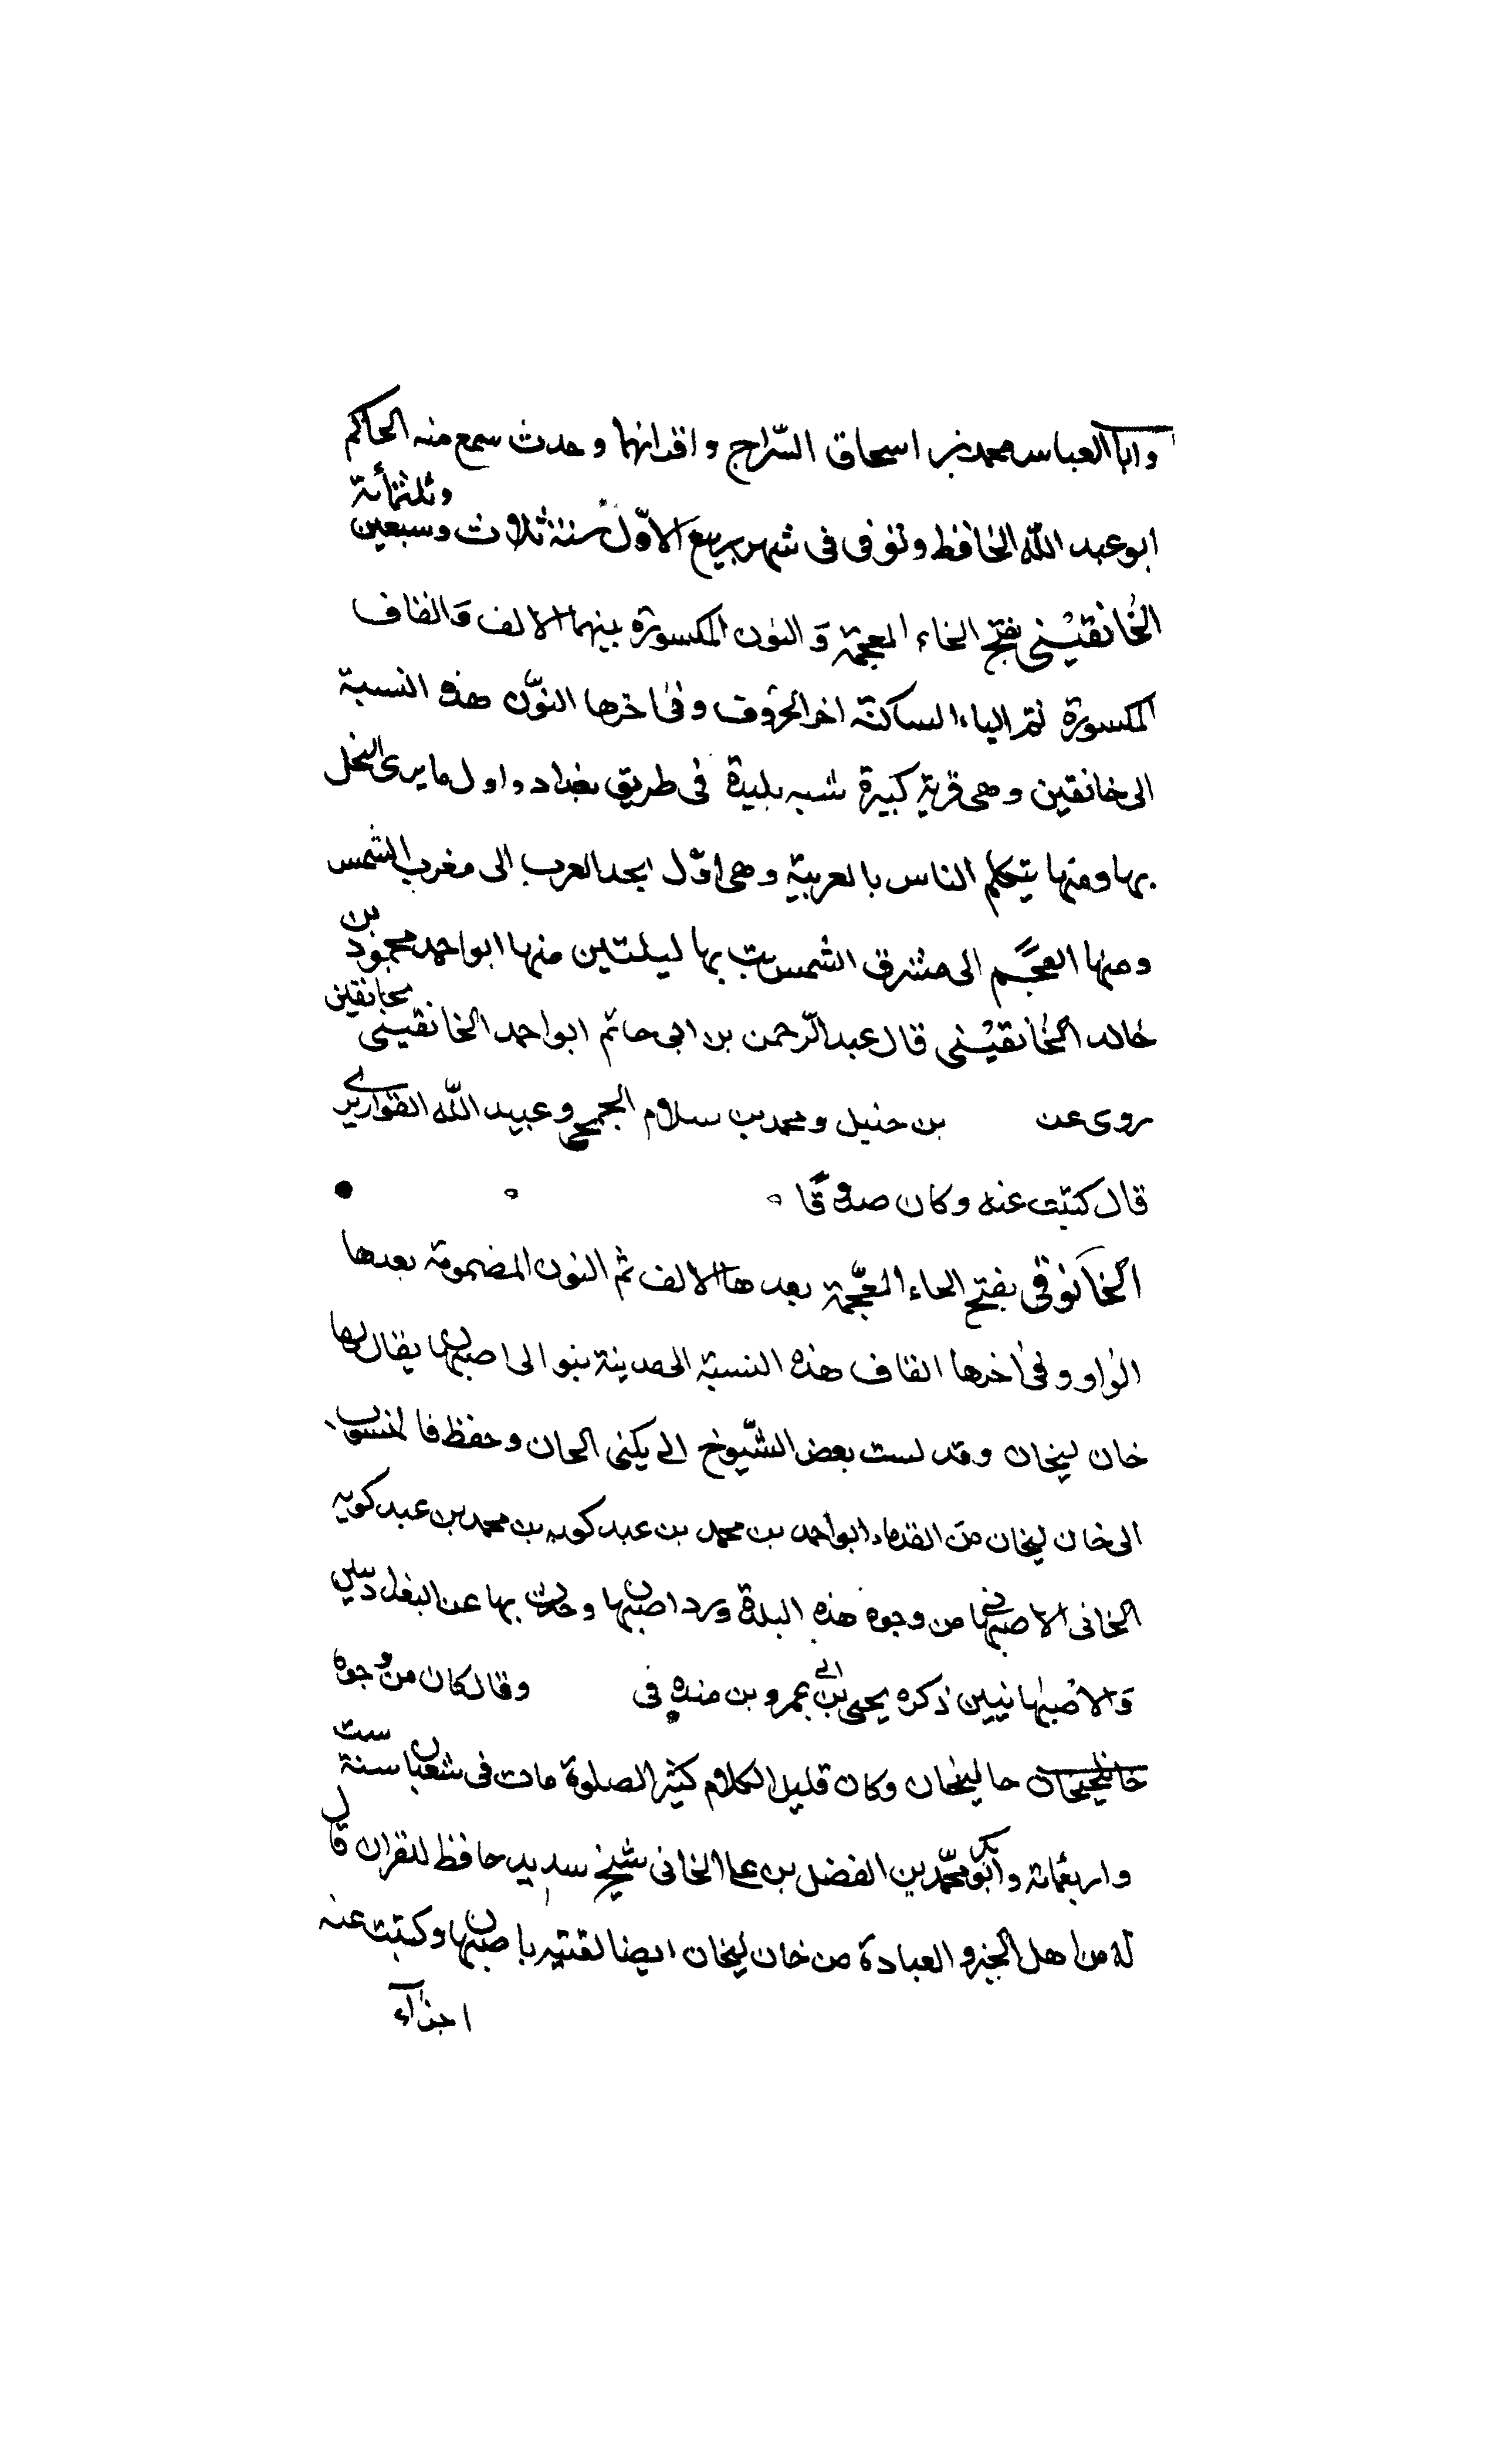 وابا العباس محمد بن اسحاق السّراج واقرانهما وحدث سمع منه الحاكم
ابو عبد الله الحافظ وتوفى فى شهر ربيع الاوّل سنة ثلاث وسبعين وثلثمأنة
الخَانقيْنى بفتح الخاء المعجمة وَالنون المكسورة بينهما الالف وَالقاف
المكسورة ثم الياء الساكنة اخر الحروف وفى اخرها النوّن هذه النسبة
الى خانقين وهى قرية كبيرة شبه بليدة فى طريق بغداد واول ما يرى النخل
بها ومنها يتكلم الناس بالعربية وهى اوّل ابجد العرب الى مغرب الشمس
ومنها العجَم الى مشرق الشمس بت بها ليلتين منها ابو احمد محمود بن
خالد الخانقيْنى قال عبد الرّحمن بن ابى حاتم ابو احمد الخانقينى بخانقين
روى عن بن حنبل ومحمد بن سلام الجمحى وعبيد الله القواريرى
قال كتبت عنه وكان صدوقا
الخَانوقى بفتح الحاء المعجّمة بعدها الالف ثم النون المضمومة بعدها
الواو وفى اخرها القاف هذه النسبة الى مدينة بنوالى اصبهان يقال لها
خان لنجان وقد لست بعض الشّيوخ الى يكنى الحان وحفظ فالمنسوب
الى خان لنجان من القدماء ابو احمد بن محمد بن عبد كويه بن محمد بن عبد كويه
الخانى الاصبهانى من وجوه هذه البلدة ورد اصبهان وحدث بها عن البغداديين
وَالاصْبهانيين ذكره يحيى بن ابى عمرو بن منده فى وقال كان من وجوه
خالنجان وكان قليل الكلام كثير الصلوة مات فى شعبان سنة ست
واربعمائة وابو بكر محمّد بن الفضل بن على الخانى شيخ سديد حافظ للقران قال
له من اهل الخير والعبادة من خان لنجان ايضا لقيته باصبهان وكتبت عنه
اجزاء